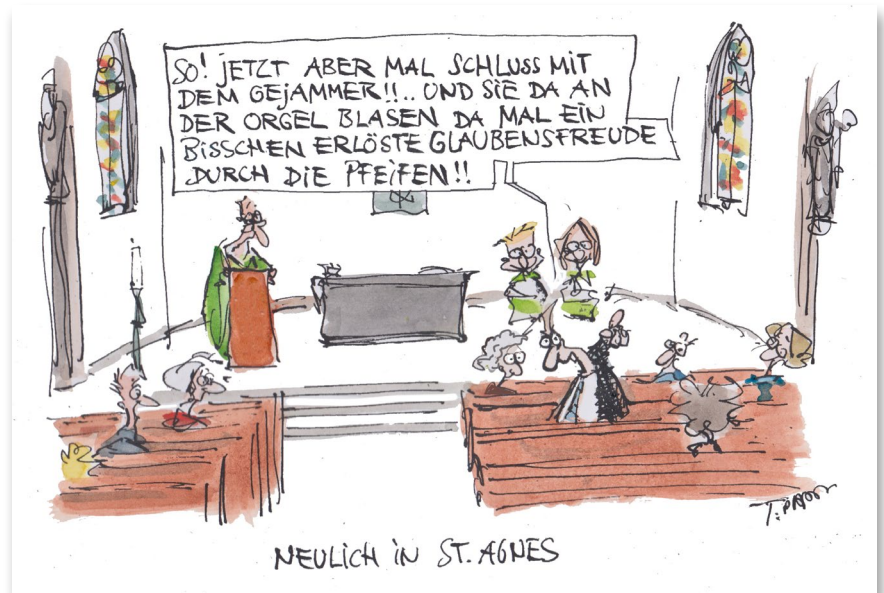 SO! JETZT ABER MAL SCHLUSS MIT
DEM GEJAMMER!!.. UND SIE DA AN
DER ORGEL BLASEN DA MAL EIN
BISSCHEN ERLÖSTE GLAUBENSFREUDE
DURCH DIE PFEIFEN!!
T. PLAßMANN
NEULICH IN ST. AGNES